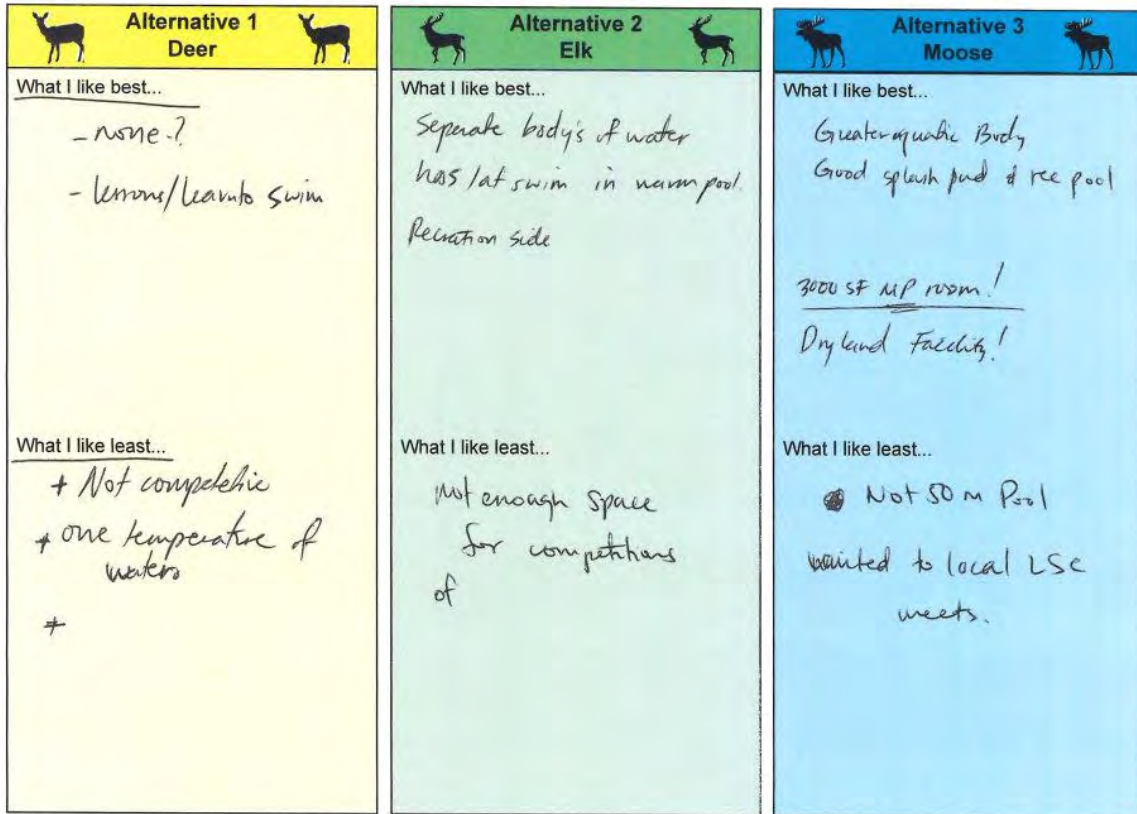 Alternative 1
Deer
What I like best...
- none-?
- lessons/learn to swim
What I like least...
+ Not competetive
+ one temperature of
waters
+
Alternative 2
Elk
What I like best...
Seperate body's of water
has lat swim in warm pool.
Recration side
What I like least...
not enough space
for competitions
of
Alternative 3
Moose
What I like best...
Greater aquatic Body
Good splash pad & rec pool
3000 SF MP room!
Dryland Facility!
What I like least...
Not 50 m Pool
to local LSC
meets.